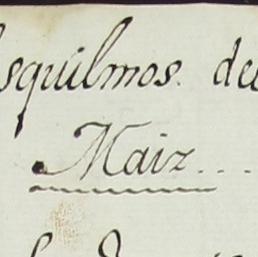 esquilmos de
Maiz...